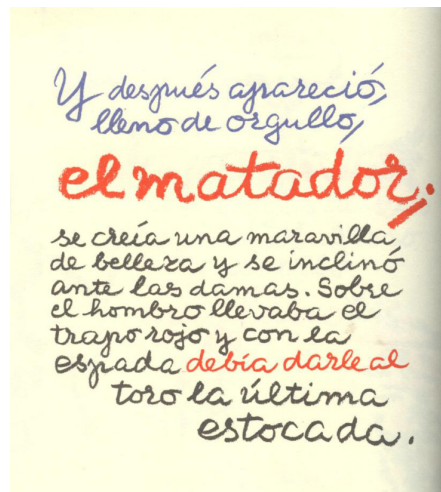 Y después apareció,
lleno de orgullo,
el matador;
se creía una maravilla
de belleza y se inclinó
ante las damas. Sobre
el hombro llevaba el
trapo rojo y con la
espada debía darle al
toro la última
estocada.